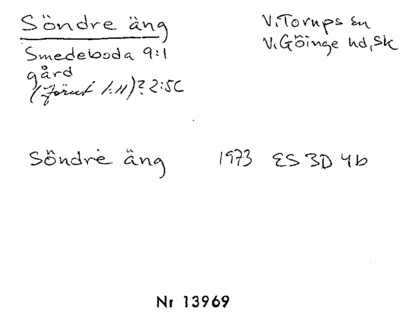 Söndre äng
V. Torups sn
V. Göinge hd, Sk
Smedeboda 9:1
gård
(Förut 1:11)? 2:50
Söndre äng 1973 ES 3D 4b
Nr 13969